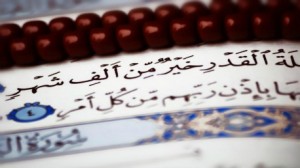 لَةُ ٱلْقَدْرِ خَيْرٌ مِّنْ أَلْفِ شَهْرٍ
هَا بِإِذْنِ رَبِّهِم مِّن كُلِّ أَمْرٍ ٤
سُورَةُ ال